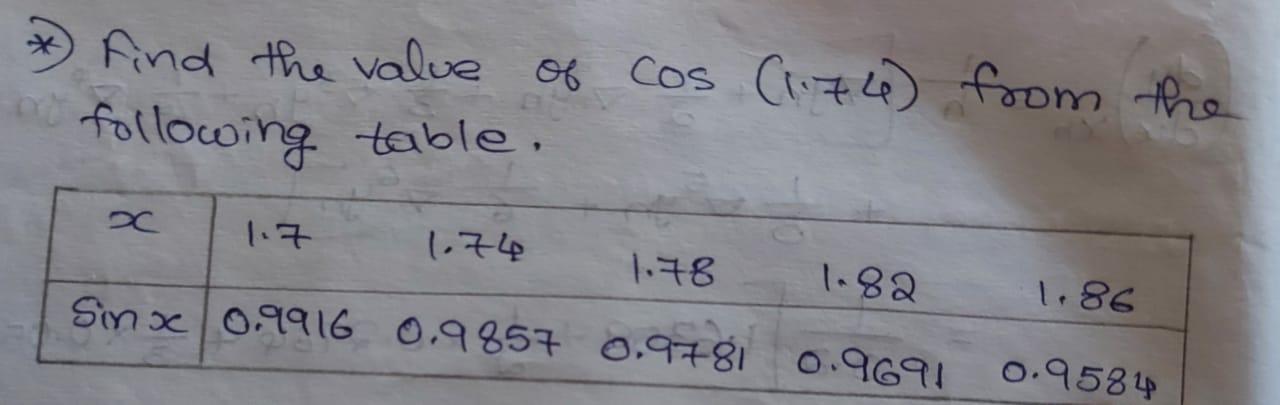 *) Find the value of cos (1.74) from the
following table.
x 1.7 1.74 1.78 1.82 1.86
Sin x 0.9916 0.9857 0.9781 0.9691 0.9584